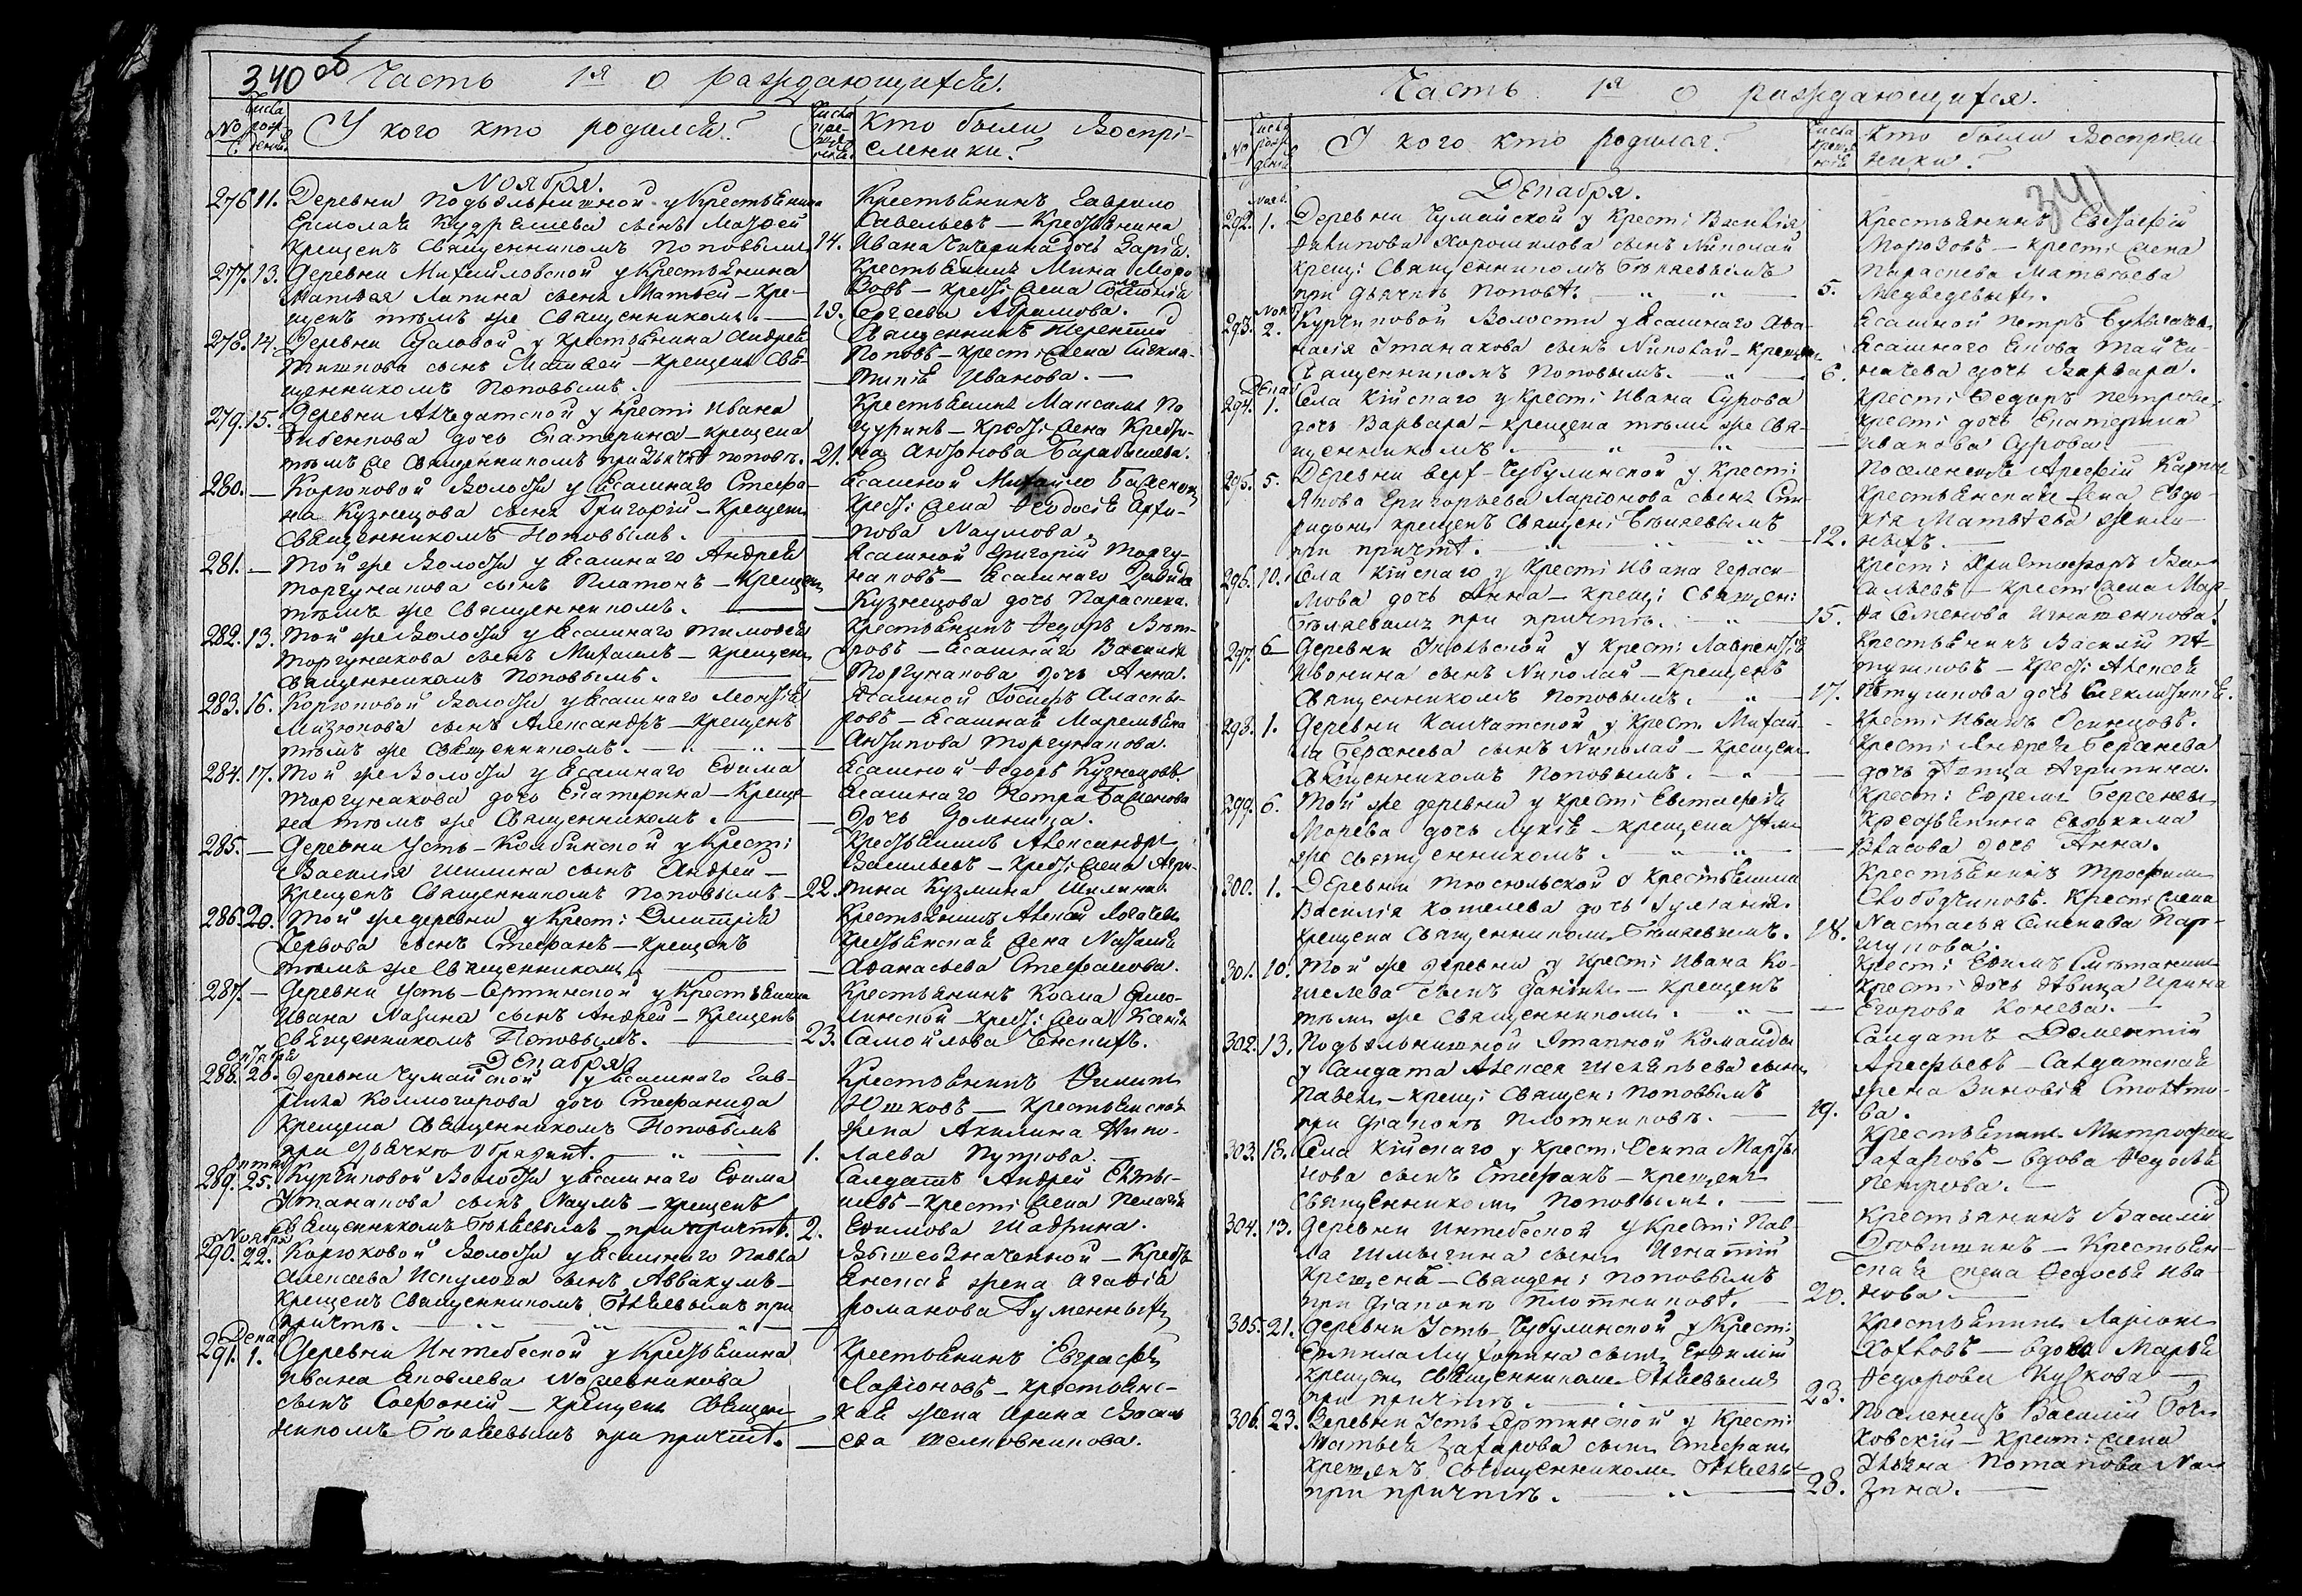 340 об
Часть 1я о раждающихся.
№
Числа рождения
У кого кто родился?
Числа крещения
Кто были Воспрі-
емники?
Ноября.
276 11. Деревни Подъельнишной у Крестьянина
Ермолая Кудряшева сынъ Матвей
Крещенъ Священникомъ Поповымъ 14.
Крестьянинъ Гаврило
Савельевъ — Крестьянина
Ивана Чичерина дочь Дарья.
277. 13. Деревни Михайловской у Крестьянина
Матвея Лапина сынъ Матвей — Кре-
щенъ тѣмъ же Священникомъ. — 19.
Крестьянинъ Мина Моро
зовъ — Крест: жена
Сергеева Абрамова.
278. 14. Деревни у Крестьянина Андрея
сынъ Матвей — Крещенъ Свя-
щенникомъ Поповымъ. —
Священникъ Терентий
Поповъ — Крест: жена Сигкли-
тикія Иванова. —
279. 15. Деревни Алчедатской у Крест: Ивана
дочь Екатерина — крещена
тѣмъ же Священникомъ при Дьячкѣ Поповѣ. 21.
Крестьянинъ Максимъ По
— Крест: жена Крести-
на Антонова Барабашева.
280. — Корюковой Волости у Ясашнаго Стефа-
на Кузнецова сынъ Григорій — Крещенъ
Священникомъ Поповымъ. —
Ясашной Михайло
Крест: жена Феодосія Архи-
пова Наумова.
281. — Той же Волости у Ясашнаго Андрея
Торгунакова сынъ Платонъ — Крещенъ
тѣмъ же Священникомъ. —
Ясашной Григорій Торгу-
наковъ — Ясашнаго Давида
Кузнецова дочь Параскева.
282. 13. Той же Волости у Ясашнаго Тимофея
Торгунакова сынъ Михаилъ — Крещенъ
Священникомъ Поповымъ. —
Крестьянинъ Федоръ Вѣт-
ровъ — Ясашнаго Василья
Торгунакова дочь Анна.
283. 16. Корюковой Волости у Ясашнаго Леонтія
Мизюкова сынъ Александръ — Крещенъ
тѣмъ же Священникомъ. —
Ясашной
ровъ — Ясашная Маремьяна
Антипова Торгунакова.
284. 17. Той же Волости у Ясашнаго Ефима
Торгунакова дочь Екатерина — Креще-
на тѣмъ же Священникомъ. —
Ясашной Федоръ Кузнецовъ
Ясашнаго Петра Баженова
дочь Домница.
285. — Деревни Усть-Колбинской у Крест:
Василія Шилина сынъ Андрей —
Крещенъ Священникомъ Поповымъ — 22.
Крестьянинъ Александръ
Васильевъ — Крест: жена Агри-
пина Кузмина Шилина.
286. 20. Той же деревни у Крест: Дмитрія
сынъ Стефанъ — Крещенъ
тѣмъ же Священникомъ. —
Крестьянинъ Алексей
Крестьянская жена Наталья
Афанасьева Стефанова.
287. — Деревни Усть-Сертинской у Крестьянина
Ивана Назина сынъ Андрей — Крещенъ
Священникомъ Поповымъ. — 23.
Крестьянинъ Косма
— Крест: жена Ксенія
Самойлова
Октября
Декабря
288. 20. Деревни Чумайской у Ясашнаго Гав-
рила Колмогорова дочь Стефанида
Крещена Священникомъ Поповымъ
при Дьячкѣ — 1.
Крестьянинъ Филипъ
Юшковъ — Крестьянская
жена Акилина Нико-
лаева
289. 25. Курчиковой Волости у Ясашнаго Ефима
Итанакова сынъ Наумъ — крещенъ
Священникомъ Бѣляевымъ — при причтѣ. 2.
Салдатъ Андрей
— Крест: жена Пелагія
Ефимова Шадрина.
Ноября
290. 22. Корюковой Волости у Ясашнаго Павла
Алексеева сынъ Аввакумъ —
Крещенъ Священникомъ Бѣляевымъ при
причтѣ. —
Вышеозначенной — Кресть-
янская жена Агафія
Романова Гуменныхъ
Декаб
291. 1. Деревни Интебеской у Крестьянина
Ивана Яковлева
сынъ Софоній — Крещенъ Священ-
никомъ Бѣляевымъ при причтѣ. —
Крестьянинъ Евграфъ
Ларіоновъ — крестьянс-
кая жена Ирина Василь
ева
Часть 1я о раждающихся.
№
Числа рождения
У кого кто родился?
Числа крещения
Кто были Воспріем
ники?
341
Декабря.
Нояб.
292. 1. Деревни Чумайской у Крест: Василія
Хорошилова сынъ Николай
Крещ: Священникомъ Бѣляевымъ
при Дьячкѣ Поповѣ. 5.
Крестьянинъ Евстафій
Морозовъ — Крест: жена
Параскева Матвѣева
Медведевыхъ.
Ноя
293. 2. Курчиковой Волости у Ясашнаго Афа-
насія Итанакова сынъ Николай — Крещенъ
Священникомъ Поповымъ. 6.
Ясашной Петръ
Ясашнаго Якова
дочь Варвара.
Дека
294. 1. Села Кійскаго у Крест: Ивана Сурова
дочь Варвара — крещена тѣмъ же Свя-
щенникомъ. —
Крест: Федоръ Петровъ
Крест: дочь Екатерина
Иванова Сурова.
295. 5. Деревни верх-Чубулинской у Крест:
Якова Григорьева Ларіонова сынъ Спи-
ридонъ крещенъ Священ: Бѣляевымъ
при причтѣ. — 12.
Поселенецъ Арефій
Крестьянская жена Евдо-
кія Матвѣева
296. 10. Села Кійскаго у Крест: Ивана Гераси-
мова дочь Анна — Крещ: Священ:
Бѣляевымъ при причтѣ. 15.
Крест: Христофоръ Ва-
сильевъ — Крест: жена Мар-
фа Семенова Игнатенкова.
297. 6 — Деревни Тюльской у Крест: Лаврентія
Ивонина сынъ Николай — Крещенъ
Священникомъ Поповымъ. — 17.
Крестьянинъ Василій Пѣ-
туховъ — Крест: Алексея
дочь
298. 1. Деревни Камчатской у Крест: Михай-
ла Берсенева сынъ Николай — Крещенъ
Священникомъ Поповымъ. —
Крест: Иванъ Осинцовъ.
Крест: Андрея Берсенева
дочь девица Агрипина.
299. 6. Той же деревни у Крест: Евстафія
Морева дочь Лукія — крещена тѣм
же Священникомъ. —
Крест: Ефремъ Берсеневъ
Крестьянина Евдокима
Власова дочь Анна.
300. 1. Деревни Тюсюльской у Крестьянина
Василія Кошелева дочь Іуліанія.
Крещена Священникомъ Бѣляевымъ. 18.
Крестьянинъ Трофимъ
Слободчиковъ. Крест: жена
Настасья Семенова Пар-
шукова.
301. 10. Той же деревни у Крест: Ивана Ко-
шелева сынъ Даніилъ — Крещенъ
тѣмъ же Священникомъ. —
Крест: Ефимъ Сметанинъ
Крест: дочь девица Ирина
Егорова Конева. —
302. 13. Подъельнишной Этапной Команды
у Салдата Алексея сынъ
Павелъ — крещ: Священ: Поповымъ
при Діаконѣ Плотниковѣ. — 19.
Салдатъ Дометтій
Арефьевъ — Салдатская
жена Зиновія
303. 18. Села Кійскаго у Крест: Осипа Марты
нова сынъ Стефанъ — Крещенъ
Священникомъ Поповымъ. —
Крестьянинъ Митрофанъ
Захаровъ — вдова Федосья
Петрова. —
304. 13. Деревни Интебеской у Крест: Пав-
ла Шмыгина сынъ Игнатій
Крещенъ — Священ: Поповымъ
при Діаконѣ Плотниковѣ. — 20.
Крестьянинъ Василій
— Крестьян-
ская жена Федосья Ива-
нова. —
305. 21. Деревни Усть-Чубулинской у Крест:
сынъ
Крещенъ Священникомъ Бѣляевымъ
при причтѣ. 23.
Крестьянинъ Ларіонъ
Хохловъ — вдова Марья
Федорова —
306. 23. Деревни Усть Сертинской у Крест:
Матвея Захарова сынъ Стефанъ
Крещенъ Священникомъ Бѣляевы-
при причтѣ. — 28.
Поселенецъ Василій
ковскій — Крест: жена
Ульяна Потапова На
зина. —